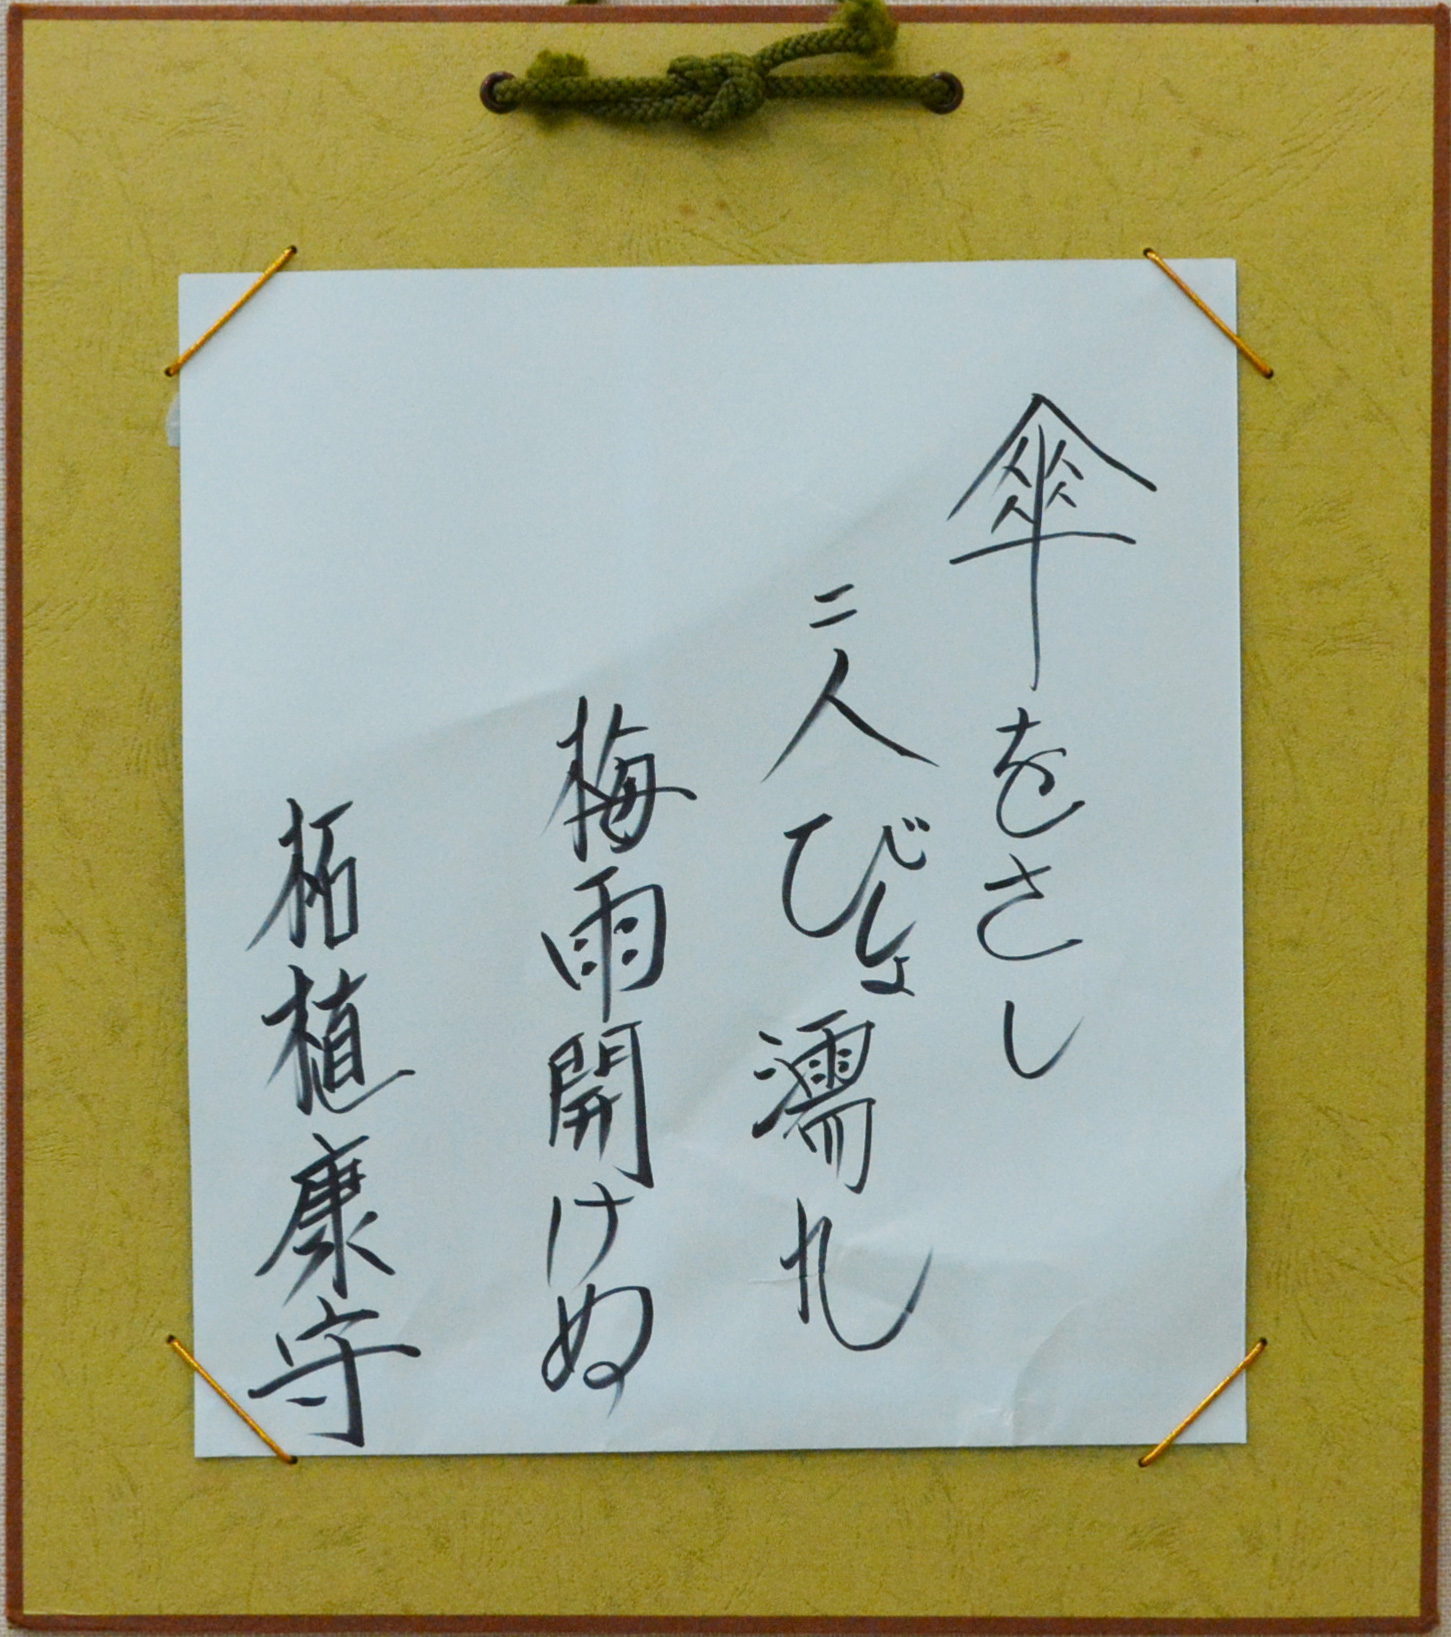 傘をさし
二人びしょ濡れ
梅雨開けぬ
柘植康守